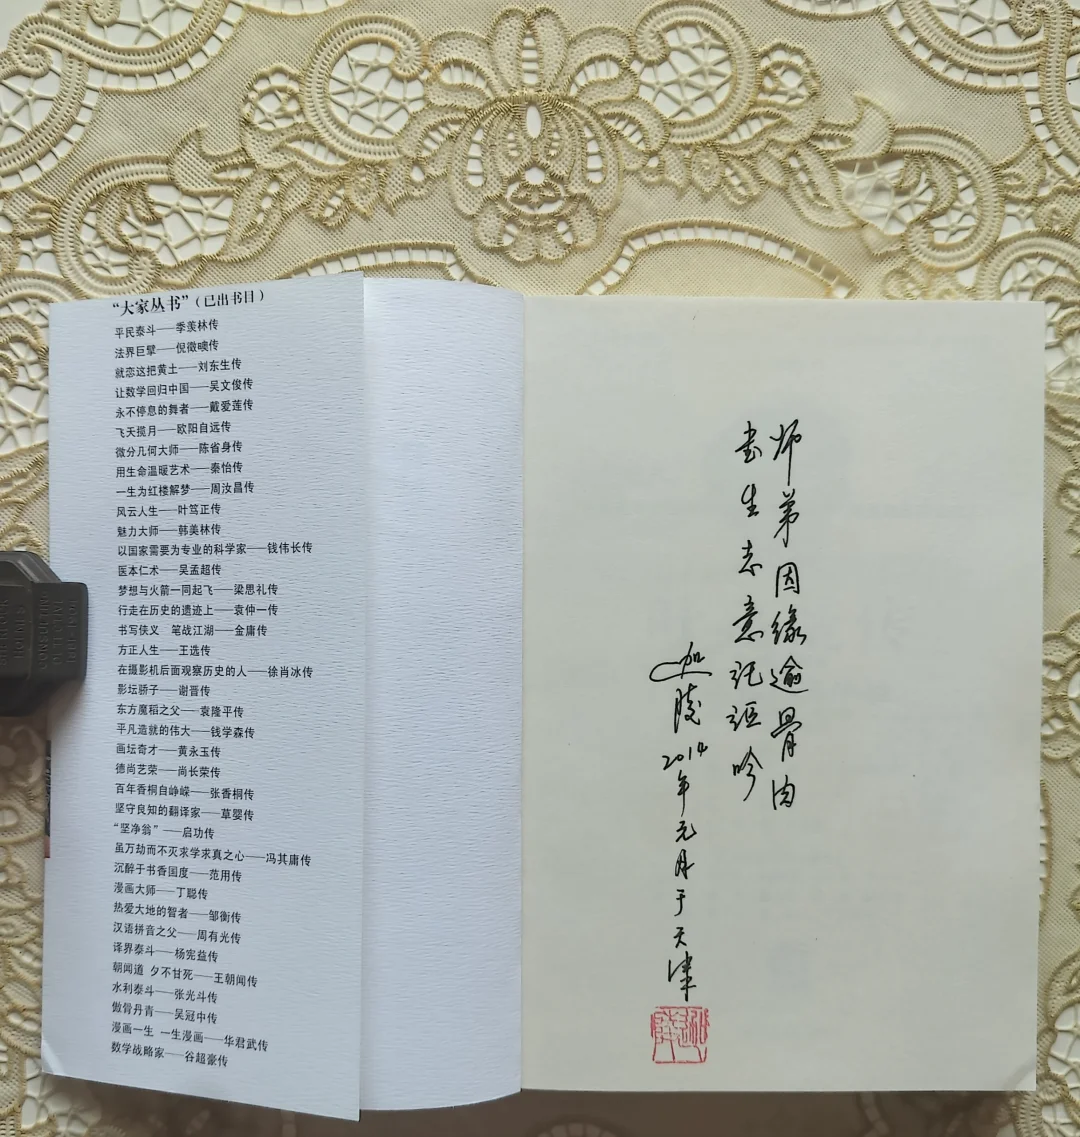 “大家丛书”（已出书目）
平民泰斗——季羡林传
法界巨擘——倪徵𣋉传
就恋这把黄土——刘东生传
让数学回归中国——吴文俊传
永不停息的舞者——戴爱莲传
飞天揽月——欧阳自远传
微分几何大师——陈省身传
用生命温暖艺术——秦怡传
一生为红楼解梦——周汝昌传
风云人生——叶笃正传
魅力大师——韩美林传
以国家需要为专业的科学家——钱伟长传
医本仁术——吴孟超传
梦想与火箭一同起飞——梁思礼传
行走在历史的遗迹上——袁仲一传
书写侠义　笔战江湖——金庸传
方正人生——王选传
在摄影机后面观察历史的人——徐肖冰传
影坛骄子——谢晋传
东方魔稻之父——袁隆平传
平凡造就的伟大——钱学森传
画坛奇才——黄永玉传
德尚艺荣——尚长荣传
百年香桐自峥嵘——张香桐传
坚守良知的翻译家——草婴传
“坚净翁”——启功传
虽万劫而不灭求学求真之心——冯其庸传
沉醉于书香国度——范用传
漫画大师——丁聪传
热爱大地的智者——邹衡传
汉语拼音之父——周有光传
译界泰斗——杨宪益传
朝闻道 夕不甘死——王朝闻传
水利泰斗——张光斗传
傲骨丹青——吴冠中传
漫画一生 一生漫画——华君武传
数学战略家——谷超豪传
师弟因缘逾骨肉
书生志意托讴吟
迦陵2014年元月于天津
迦陵